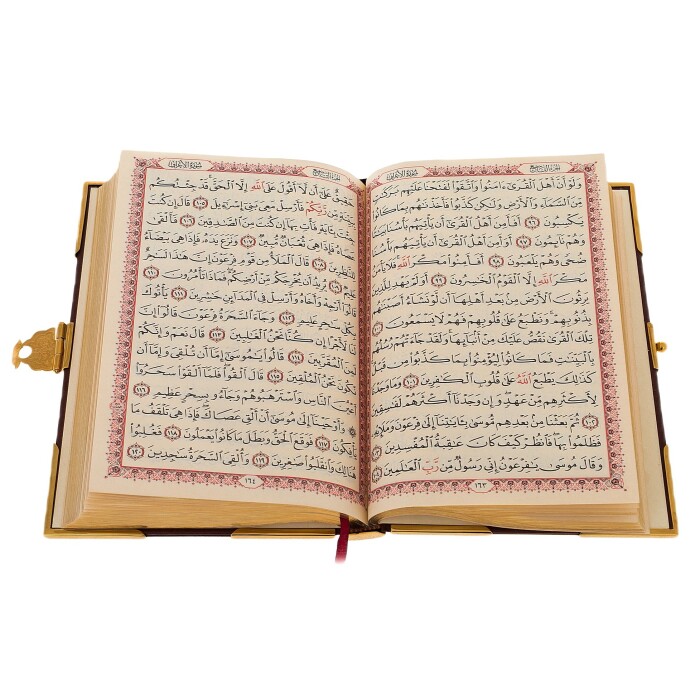 سُورَةُ الأَعْرَافِ الجُزْءُ التَّاسِعُ
وَلَوْ أَنَّ أَهْلَ ٱلْقُرَىٰٓ ءَامَنُوا۟ وَٱتَّقَوْا۟ لَفَتَحْنَا عَلَيْهِم بَرَكَـٰتٍ
مِّنَ ٱلسَّمَآءِ وَٱلْأَرْضِ وَلَـٰكِن كَذَّبُوا۟ فَأَخَذْنَـٰهُم بِمَا كَانُوا۟
يَكْسِبُونَ ٩٦ أَفَأَمِنَ أَهْلُ ٱلْقُرَىٰٓ أَن يَأْتِيَهُم بَأْسُنَا بَيَـٰتًا
وَهُمْ نَآئِمُونَ ٩٧ أَوَأَمِنَ أَهْلُ ٱلْقُرَىٰٓ أَن يَأْتِيَهُم بَأْسُنَا
ضُحًى وَهُمْ يَلْعَبُونَ ٩٨ أَفَأَمِنُوا۟ مَكْرَ ٱللَّهِ فَلَا يَأْمَنُ
مَكْرَ ٱللَّهِ إِلَّا ٱلْقَوْمُ ٱلْخَـٰسِرُونَ ٩٩ أَوَلَمْ يَهْدِ لِلَّذِينَ
يَرِثُونَ ٱلْأَرْضَ مِنۢ بَعْدِ أَهْلِهَآ أَن لَّوْ نَشَآءُ أَصَبْنَـٰهُم
بِذُنُوبِهِمْ وَنَطْبَعُ عَلَىٰ قُلُوبِهِمْ فَهُمْ لَا يَسْمَعُونَ ١٠٠
تِلْكَ ٱلْقُرَىٰ نَقُصُّ عَلَيْكَ مِنْ أَنۢبَآئِهَا وَلَقَدْ جَآءَتْهُمْ رُسُلُهُم
بِٱلْبَيِّنَـٰتِ فَمَا كَانُوا۟ لِيُؤْمِنُوا۟ بِمَا كَذَّبُوا۟ مِن قَبْلُ
كَذَٰلِكَ يَطْبَعُ ٱللَّهُ عَلَىٰ قُلُوبِ ٱلْكَـٰفِرِينَ ١٠١ وَمَا وَجَدْنَا
لِأَكْثَرِهِم مِّنْ عَهْدٍ وَإِن وَجَدْنَآ أَكْثَرَهُمْ لَفَـٰسِقِينَ
١٠٢ ثُمَّ بَعَثْنَا مِنۢ بَعْدِهِم مُّوسَىٰ بِـَٔايَـٰتِنَآ إِلَىٰ فِرْعَوْنَ وَمَلَإِي۟هِۦ
فَظَلَمُوا۟ بِهَا فَٱنظُرْ كَيْفَ كَانَ عَـٰقِبَةُ ٱلْمُفْسِدِينَ ١٠٣
وَقَالَ مُوسَىٰ يَـٰفِرْعَوْنُ إِنِّى رَسُولٌ مِّن رَّبِّ ٱلْعَـٰلَمِينَ
١٦٣
الجُزْءُ التَّاسِعُ سُورَةُ الأَعْرَافِ
حَقِيقٌ عَلَىٰٓ أَن لَّآ أَقُولَ عَلَى ٱللَّهِ إِلَّا ٱلْحَقَّ قَدْ جِئْتُكُم
بِبَيِّنَةٍ مِّن رَّبِّكُمْ فَأَرْسِلْ مَعِىَ بَنِىٓ إِسْرَٰٓءِيلَ ١٠٥ قَالَ إِن كُنتَ
جِئْتَ بِـَٔايَةٍ فَأْتِ بِهَآ إِن كُنتَ مِنَ ٱلصَّـٰدِقِينَ ١٠٦ فَأَلْقَىٰ
عَصَاهُ فَإِذَا هِىَ ثُعْبَانٌ مُّبِينٌ ١٠٧ وَنَزَعَ يَدَهُۥ فَإِذَا هِىَ بَيْضَآءُ
لِلنَّـٰظِرِينَ ١٠٨ قَالَ ٱلْمَلَأُ مِن قَوْمِ فِرْعَوْنَ إِنَّ هَـٰذَا لَسَـٰحِرٌ
عَلِيمٌ ١٠٩ يُرِيدُ أَن يُخْرِجَكُم مِّنْ أَرْضِكُمْ فَمَاذَا تَأْمُرُونَ ١١٠
قَالُوٓا۟ أَرْجِهْ وَأَخَاهُ وَأَرْسِلْ فِى ٱلْمَدَآئِنِ حَـٰشِرِينَ ١١١ يَأْتُوكَ
بِكُلِّ سَـٰحِرٍ عَلِيمٍ ١١٢ وَجَآءَ ٱلسَّحَرَةُ فِرْعَوْنَ قَالُوٓا۟ إِنَّ
لَنَا لَأَجْرًا إِن كُنَّا نَحْنُ ٱلْغَـٰلِبِينَ ١١٣ قَالَ نَعَمْ وَإِنَّكُمْ
لَمِنَ ٱلْمُقَرَّبِينَ ١١٤ قَالُوا۟ يَـٰمُوسَىٰٓ إِمَّآ أَن تُلْقِىَ وَإِمَّآ أَن
نَّكُونَ نَحْنُ ٱلْمُلْقِينَ ١١٥ قَالَ أَلْقُوا۟ فَلَمَّآ أَلْقَوْا۟ سَحَرُوٓا۟
أَعْيُنَ ٱلنَّاسِ وَٱسْتَرْهَبُوهُمْ وَجَآءُو بِسِحْرٍ عَظِيمٍ ١١٦
وَأَوْحَيْنَآ إِلَىٰ مُوسَىٰٓ أَنْ أَلْقِ عَصَاكَ فَإِذَا هِىَ تَلْقَفُ مَا
يَأْفِكُونَ ١١٧ فَوَقَعَ ٱلْحَقُّ وَبَطَلَ مَا كَانُوا۟ يَعْمَلُونَ ١١٨ فَغُلِبُوا۟
هُنَالِكَ وَٱنقَلَبُوا۟ صَـٰغِرِينَ ١١٩ وَأُلْقِىَ ٱلسَّحَرَةُ سَـٰجِدِينَ ١٢٠
١٦٤